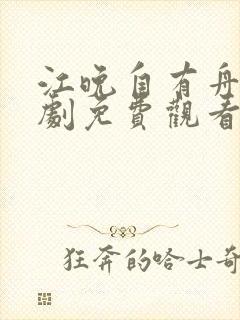 江晚自有舟
劇免費觀看
狂奔的哈士奇